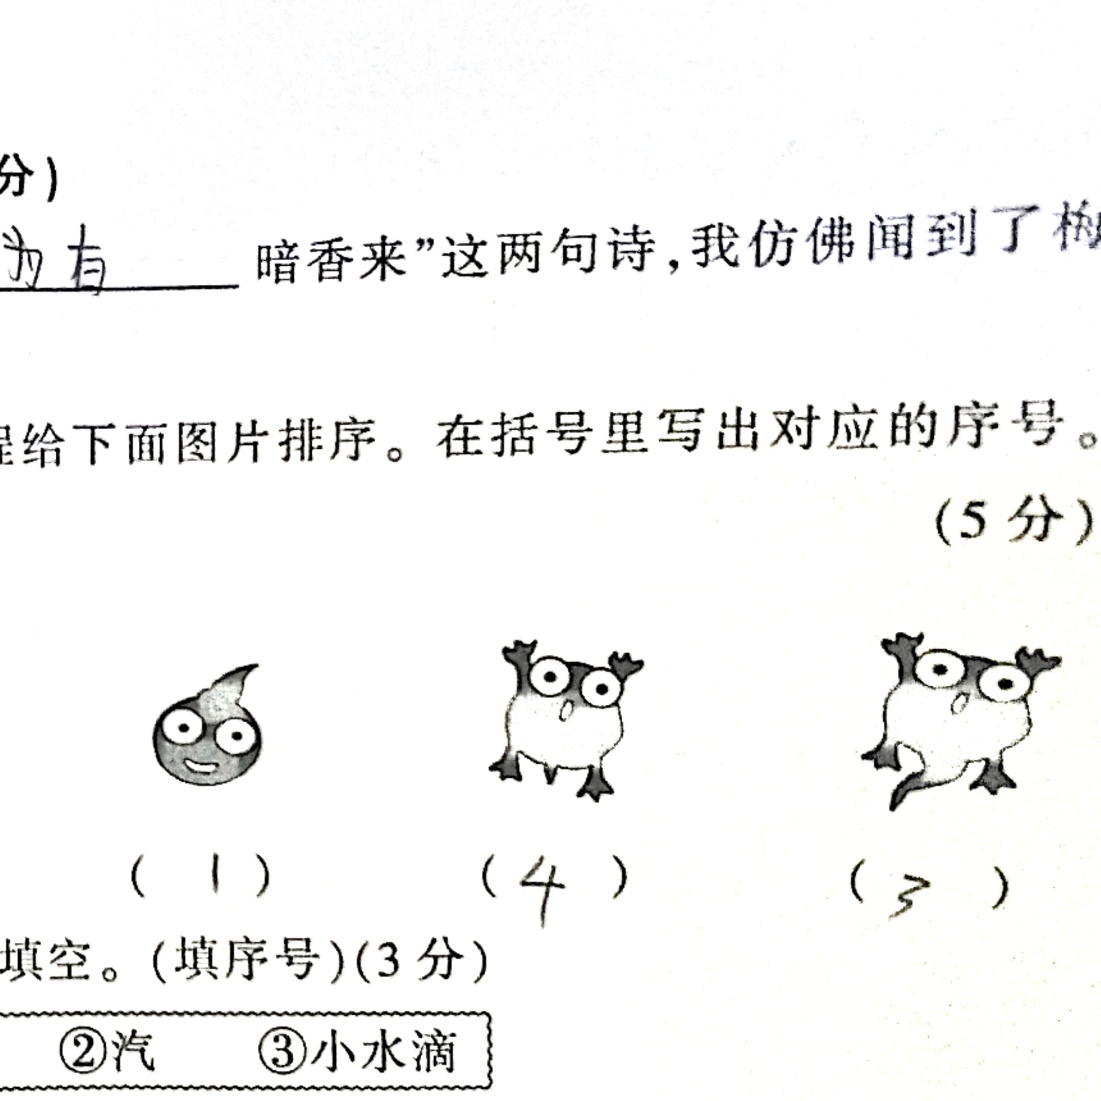 分)
为有 暗香来”这两句诗,我仿佛闻到了梅
程给下面图片排序。在括号里写出对应的序号。
(5 分)
( 1 ) ( 4 ) ( 3 )
填空。(填序号)(3 分)
②汽 ③小水滴